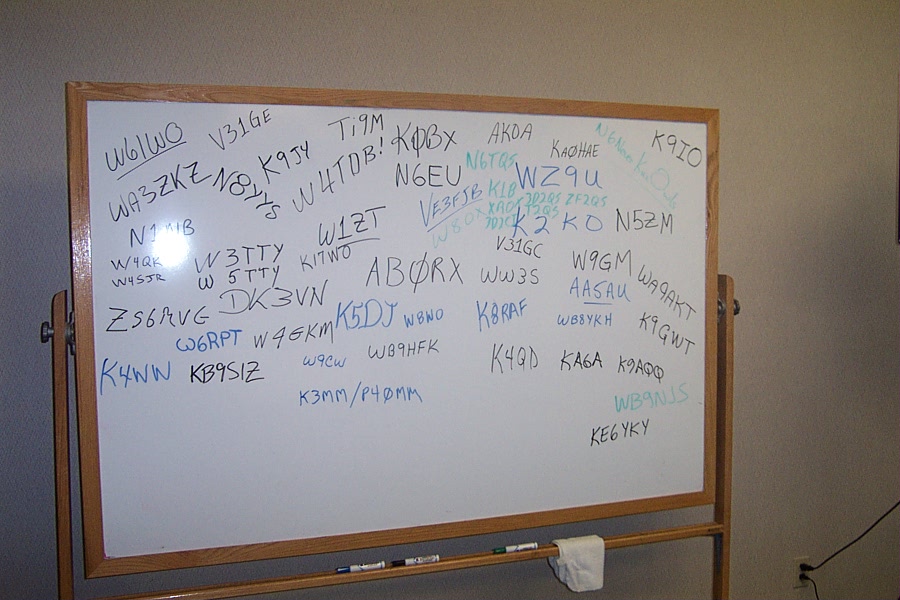 W6IWO
V31GE
Ti9M
KØBX
AKØA
KAØHAE
K9IO
WA3ZKZ
N8YYS
K9JY
W4TDB!
N6EU
N6TQS
WZ9U
K1B
3D2QS ZF2QS
T2QS
VE3FJB
K2KO
N5ZM
W1ZT
W4QK
W4SJR
W3TTY
W5TTY
K17WO
V31GC
ABØRX
WW3S
W9GM
WA9AKT
AA5AU
ZS6RVG
DK3VN
K5DJ
W8NO
K8RAF
WB8YKH
K9GWT
W6RPT
W4GKM
K4WW
KB9SIZ
W9CW
WB9HFK
K4QD
KA6A
K9AQQ
K3MM/P4ØMM
WB9NJS
KE6YKY